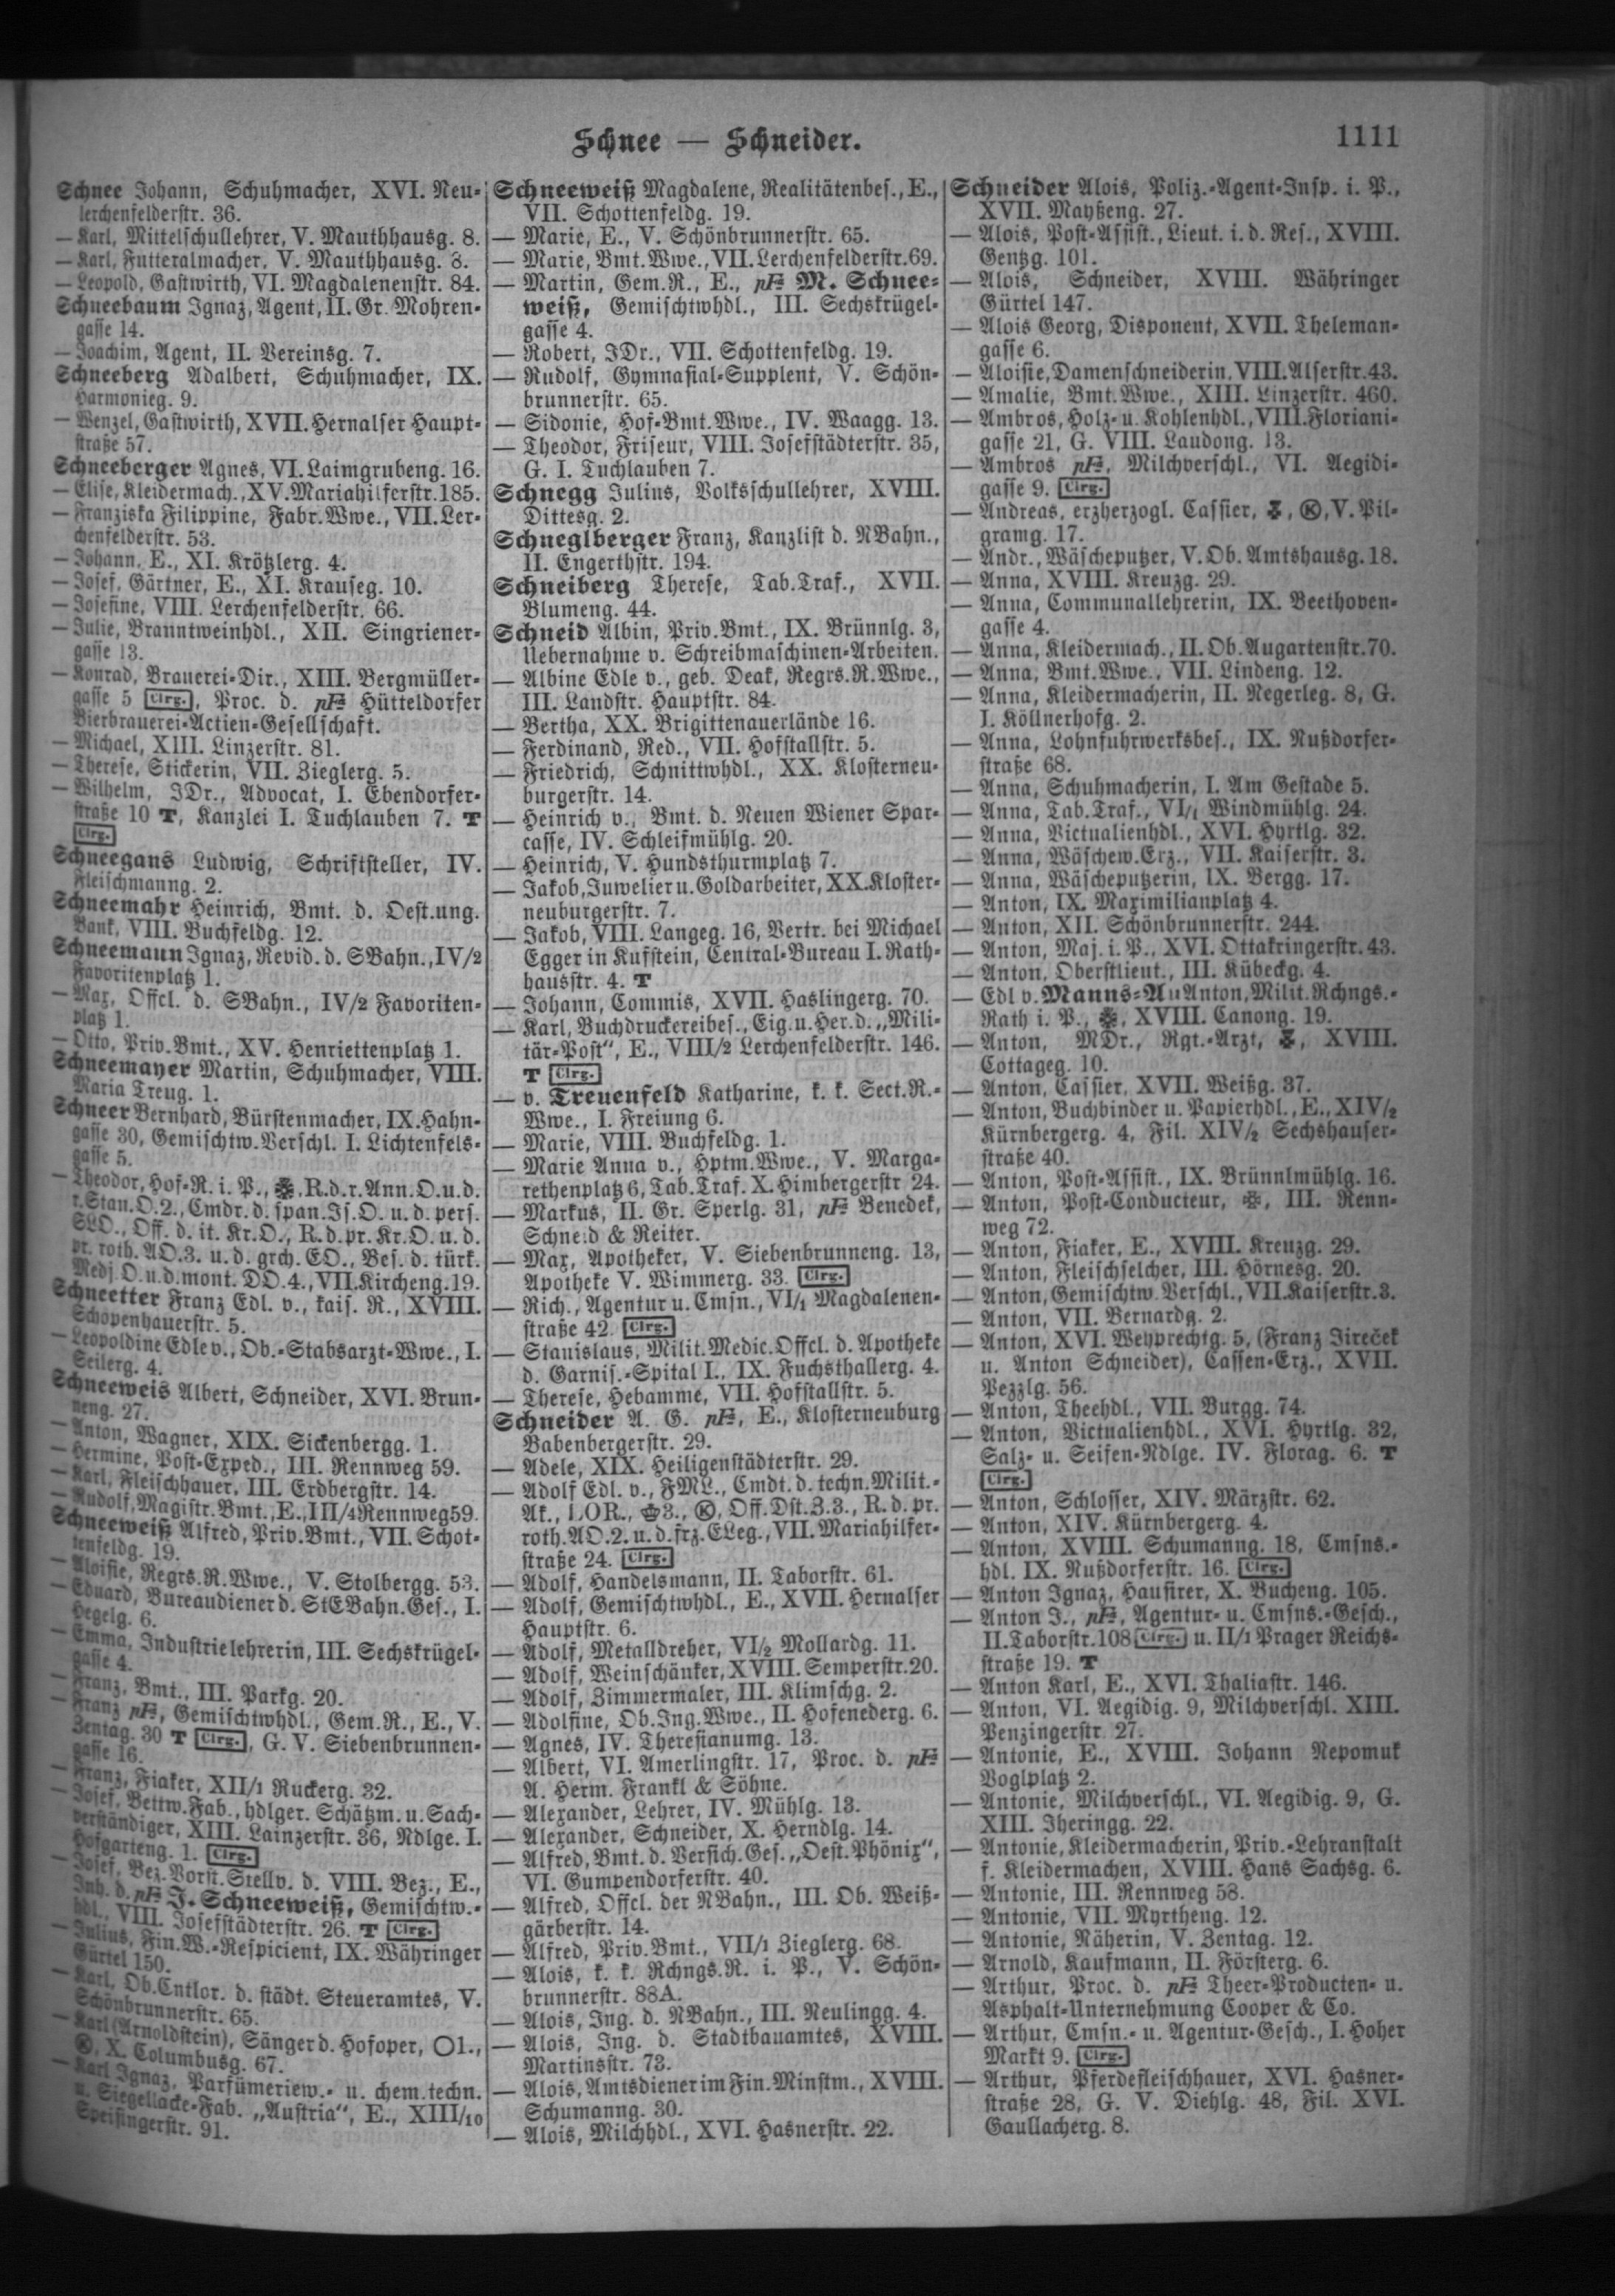 Schnee — Schneider.
1111
Schnee Johann, Schuhmacher, XVI. Neu-
lerchenfelderstr. 36.
— Karl, Mittelschullehrer, V. Mauthhausg. 8.
— Karl, Futteralmacher, V. Mauthhausg. 3.
— Leopold, Gastwirth, VI. Magdalenenstr. 84.
Schneebaum Ignaz, Agent, II. Gr. Mohren-
gasse 14.
— Joachim, Agent, II. Vereinsg. 7.
Schneeberg Adalbert, Schuhmacher, IX.
Harmonieg. 9.
— Wenzel, Gastwirth, XVII. Hernalser Haupt-
straße 57.
Schneeberger Agnes, VI. Laimgrubeng. 16.
— Elise, Kleidermach., XV. Mariahilferstr. 185.
— Franziska Filippine, Fabr.Wwe., VII. Ler-
chenfelderstr. 53.
— Johann, E., XI. Krötzlerg. 4.
— Josef, Gärtner, E., XI. Krauseg. 10.
— Josefine, VIII. Lerchenfelderstr. 66.
— Julie, Branntweinhdl., XII. Singriener-
gasse 13.
— Konrad, Brauerei-Dir., XIII. Bergmüller-
gasse 5 Clrg., Proc. d. pFa Hütteldorfer
Bierbrauerei-Actien-Gesellschaft.
— Michael, XIII. Linzerstr. 81.
— Therese, Stickerin, VII. Zieglerg. 5.
— Wilhelm, JDr., Advocat, I. Ebendorfer-
straße 10 T, Kanzlei I. Tuchlauben 7. T
Clrg.
Schneegans Ludwig, Schriftsteller, IV.
Fleischmanng. 2.
Schneemahr Heinrich, Bmt. d. Oest.ung.
Bank, VIII. Buchfeldg. 12.
Schneemann Ignaz, Revid. d. SBahn., IV/2
Favoritenplatz 1.
— Max, Offcl. d. SBahn., IV/2 Favoriten-
platz 1.
— Otto, Priv.Bmt., XV. Henriettenplatz 1.
Schneemayer Martin, Schuhmacher, VIII.
Maria Treug. 1.
Schneer Bernhard, Bürstenmacher, IX. Hahn-
gasse 30, Gemischtw.Verschl. I. Lichtenfels-
gasse 5.
— Theodor, Hof-R. i. P., R.d.r.Ann.O.u.d.
r.Stan.O.2., Cmdr. d. span. Is.O. u. d. pers.
SLO., Off. d. it. Kr.O., R.d.pr.Kr.O. u. d.
pr. roth. AO.3. u. d. grch. EO., Bes. d. türk.
Medj.O.u.d.mont. DO.4., VII. Kircheng. 19.
Schneetter Franz Edl. v., kais. R., XVIII.
Schopenhauerstr. 5.
— Leopoldine Edle v., Ob.-Stabsarzt-Wwe., I.
Seilerg. 4.
Schneeweis Albert, Schneider, XVI. Brun-
neng. 27.
— Anton, Wagner, XIX. Sickenbergg. 1.
— Hermine, Post-Exped., III. Rennweg 59.
— Karl, Fleischhauer, III. Erdbergstr. 14.
— Rudolf, Magistr.Bmt., E., III/4 Rennweg 59.
Schneeweiß Alfred, Priv.Bmt., VII. Schot-
tenfeldg. 19.
— Aloisie, Regrs.R.Wwe., V. Stolbergg. 53.
— Eduard, Bureaudiener d. StEBahn.Ges., I.
Hegelg. 6.
— Emma, Industrielehrerin, III. Sechskrügel-
gasse 4.
— Franz, Bmt., III. Parkg. 20.
— Franz pFa, Gemischtwhdl., Gem.R., E., V.
Zentag. 30 T Clrg., G. V. Siebenbrunnen-
gasse 16.
— Franz, Fiaker, XII/1 Ruckerg. 32.
— Josef, Bettw.Fab., hdlger. Schätzm. u. Sach-
verständiger, XIII. Lainzerstr. 36, Ndlge. I.
Hofgarteng. 1. Clrg.
— Josef, Bez.Vorst.Stellv. d. VIII. Bez., E.,
Inh. d. pFa J. Schneeweiß, Gemischtw.-
hdl., VIII. Josefstädterstr. 26. T Clrg.
— Julius, Fin.W.-Respicient, IX. Währinger
Gürtel 150.
— Karl, Ob.Cntlor. d. städt. Steueramtes, V.
Schönbrunnerstr. 65.
— Karl (Arnoldstein), Sänger d. Hofoper, O1.,
Ⓚ, X. Columbusg. 67.
— Karl Ignaz, Parfümeriew.- u. chem.techn.
u. Siegellacke-Fab. „Austria“, E., XIII/10
Speisingerstr. 91.
Schneeweiß Magdalene, Realitätenbes., E.,
VII. Schottenfeldg. 19.
— Marie, E., V. Schönbrunnerstr. 65.
— Marie, Bmt.Wwe., VII. Lerchenfelderstr. 69.
— Martin, Gem.R., E., pFa M. Schnee-
weiß, Gemischtwhdl., III. Sechskrügel-
gasse 4.
— Robert, JDr., VII. Schottenfeldg. 19.
— Rudolf, Gymnasial-Supplent, V. Schön-
brunnerstr. 65.
— Sidonie, Hof-Bmt.Wwe., IV. Waagg. 13.
— Theodor, Friseur, VIII. Josefstädterstr. 35,
G. I. Tuchlauben 7.
Schnegg Julius, Volksschullehrer, XVIII.
Dittesg. 2.
Schneglberger Franz, Kanzlist d. NBahn.,
II. Engerthstr. 194.
Schneiberg Therese, Tab.Traf., XVII.
Blumeng. 44.
Schneid Albin, Priv.Bmt., IX. Brünnlg. 3,
Uebernahme v. Schreibmaschinen-Arbeiten.
— Albine Edle v., geb. Deak, Regrs.R.Wwe.,
III. Landstr. Hauptstr. 84.
— Bertha, XX. Brigittenauerlände 16.
— Ferdinand, Red., VII. Hofstallstr. 5.
— Friedrich, Schnittwhdl., XX. Klosterneu-
burgerstr. 14.
— Heinrich v., Bmt. d. Neuen Wiener Spar-
casse, IV. Schleifmühlg. 20.
— Heinrich, V. Hundsthurmplatz 7.
— Jakob, Juwelier u. Goldarbeiter, XX. Kloster-
neuburgerstr. 7.
— Jakob, VIII. Langeg. 16, Vertr. bei Michael
Egger in Kufstein, Central-Bureau I. Rath-
hausstr. 4. T
— Johann, Commis, XVII. Haslingerg. 70.
— Karl, Buchdruckereibes., Eig. u. Her. d. „Mili-
tär-Post“, E., VIII/2 Lerchenfelderstr. 146.
T Clrg.
— v. Treuenfeld Katharine, k. k. Sect.R.-
Wwe., I. Freiung 6.
— Marie, VIII. Buchfeldg. 1.
— Marie Anna v., Hptm.Wwe., V. Marga-
rethenplatz 6, Tab.Traf. X. Himbergerstr 24.
— Markus, II. Gr. Sperlg. 31, pFa Benedek,
Schneid & Reiter.
— Max, Apotheker, V. Siebenbrunneng. 13,
Apotheke V. Wimmerg. 33. Clrg.
— Rich., Agentur u. Cmsn., VI/1 Magdalenen-
straße 42. Clrg.
— Stanislaus, Milit.Medic.Offcl. d. Apotheke
d. Garnis.-Spital I., IX. Fuchsthallerg. 4.
— Therese, Hebamme, VII. Hofstallstr. 5.
Schneider A. G. pFa, E., Klosterneuburg
Babenbergerstr. 29.
— Adele, XIX. Heiligenstädterstr. 29.
— Adolf Edl. v., FML., Cmdt. d. techn.Milit.-
Ak., LOR., 3., Ⓚ, Off.Dst.Z.3., R. d. pr.
roth.AO.2. u. d. frz. ELeg., VII. Mariahilfer-
straße 24. Clrg.
— Adolf, Handelsmann, II. Taborstr. 61.
— Adolf, Gemischtwhdl., E., XVII. Hernalser
Hauptstr. 6.
— Adolf, Metalldreher, VI/2 Mollardg. 11.
— Adolf, Weinschänker, XVIII. Semperstr. 20.
— Adolf, Zimmermaler, III. Klimschg. 2.
— Adolfine, Ob.Ing.Wwe., II. Hofenederg. 6.
— Agnes, IV. Theresianumg. 13.
— Albert, VI. Amerlingstr. 17, Proc. d. pFa
A. Herm. Frankl & Söhne.
— Alexander, Lehrer, IV. Mühlg. 13.
— Alexander, Schneider, X. Herndlg. 14.
— Alfred, Bmt. d. Versich.Ges. „Oest. Phönix“,
VI. Gumpendorferstr. 40.
— Alfred, Offcl. der NBahn., III. Ob. Weiß-
gärberstr. 14.
— Alfred, Priv.Bmt., VII/1 Zieglerg. 68.
— Alois, k. k. Rchngs.R. i. P., V. Schön-
brunnerstr. 88A.
— Alois, Ing. d. NBahn., III. Neulingg. 4.
— Alois, Ing. d. Stadtbauamtes, XVIII.
Martinsstr. 73.
— Alois, Amtsdiener im Fin.Minstm., XVIII.
Schumanng. 30.
— Alois, Milchhdl., XVI. Hasnerstr. 22.
Schneider Alois, Poliz.-Agent-Insp. i. P.,
XVII. Mayßeng. 27.
— Alois, Post-Assist., Lieut. i. d. Res., XVIII.
Gentzg. 101.
— Alois, Schneider, XVIII. Währinger
Gürtel 147.
— Alois Georg, Disponent, XVII. Theleman-
gasse 6.
— Aloisie, Damenschneiderin, VIII. Alserstr. 43.
— Amalie, Bmt.Wwe., XIII. Linzerstr. 460.
— Ambros, Holz- u. Kohlenhdl., VIII. Floriani-
gasse 21, G. VIII. Laudong. 13.
— Ambros pFa, Milchverschl., VI. Aegidi-
gasse 9. Clrg.
— Andreas, erzherzogl. Cassier, Ⓚ, V. Pil-
gramg. 17.
— Andr., Wäscheputzer, V. Ob. Amtshausg. 18.
— Anna, XVIII. Kreuzg. 29.
— Anna, Communallehrerin, IX. Beethoven-
gasse 4.
— Anna, Kleidermach., II. Ob. Augartenstr. 70.
— Anna, Bmt.Wwe., VII. Lindeng. 12.
— Anna, Kleidermacherin, II. Negerleg. 8, G.
I. Köllnerhofg. 2.
— Anna, Lohnfuhrwerksbes., IX. Nußdorfer-
straße 68.
— Anna, Schuhmacherin, I. Am Gestade 5.
— Anna, Tab.Traf., VI/1 Windmühlg. 24.
— Anna, Victualienhdl., XVI. Hyrtlg. 32.
— Anna, Wäschew.Erz., VII. Kaiserstr. 3.
— Anna, Wäscheputzerin, IX. Bergg. 17.
— Anton, IX. Maximilianplatz 4.
— Anton, XII. Schönbrunnerstr. 244.
— Anton, Maj. i. P., XVI. Ottakringerstr. 43.
— Anton, Oberstlieut., III. Kübeckg. 4.
— Edl v. Manns-Au Anton, Milit.Rchngs.-
Rath i. P., XVIII. Canong. 19.
— Anton, MDr., Rgt.-Arzt, XVIII.
Cottageg. 10.
— Anton, Cassier, XVII. Weißg. 37.
— Anton, Buchbinder u. Papierhdl., E., XIV/2
Kürnbergerg. 4, Fil. XIV/2 Sechshauser-
straße 40.
— Anton, Post-Assist., IX. Brünnlmühlg. 16.
— Anton, Post-Conducteur, III. Renn-
weg 72.
— Anton, Fiaker, E., XVIII. Kreuzg. 29.
— Anton, Fleischselcher, III. Hörnesg. 20.
— Anton, Gemischtw.Verschl., VII. Kaiserstr. 3.
— Anton, VII. Bernardg. 2.
— Anton, XVI. Weyprechtg. 5, (Franz Jireček
u. Anton Schneider), Cassen-Erz., XVII.
Pezzlg. 56.
— Anton, Theehdl., VII. Burgg. 74.
— Anton, Victualienhdl., XVI. Hyrtlg. 32,
Salz- u. Seifen-Ndlge. IV. Florag. 6. T
Clrg.
— Anton, Schlosser, XIV. Märzstr. 62.
— Anton, XIV. Kürnbergerg. 4.
— Anton, XVIII. Schumanng. 18, Cmsns.-
hdl. IX. Nußdorferstr. 16. Clrg.
— Anton Ignaz, Hausirer, X. Bucheng. 105.
— Anton J., pFa, Agentur- u. Cmsns.-Gesch.,
II. Taborstr. 108 Clrg. u. II/1 Prager Reichs-
straße 19. T
— Anton Karl, E., XVI. Thaliastr. 146.
— Anton, VI. Aegidig. 9, Milchverschl. XIII.
Penzingerstr 27.
— Antonie, E., XVIII. Johann Nepomuk
Voglplatz 2.
— Antonie, Milchverschl., VI. Aegidig. 9, G.
XIII. Iheringg. 22.
— Antonie, Kleidermacherin, Priv.-Lehranstalt
f. Kleidermachen, XVIII. Hans Sachsg. 6.
— Antonie, III. Rennweg 58.
— Antonie, VII. Myrtheng. 12.
— Antonie, Näherin, V. Zentag. 12.
— Arnold, Kaufmann, II. Försterg. 6.
— Arthur, Proc. d. pFa Theer-Producten- u.
Asphalt-Unternehmung Cooper & Co.
— Arthur, Cmsn.- u. Agentur-Gesch., I. Hoher
Markt 9. Clrg.
— Arthur, Pferdefleischhauer, XVI. Hasner-
straße 28, G. V. Diehlg. 48, Fil. XVI.
Gaullacherg. 8.